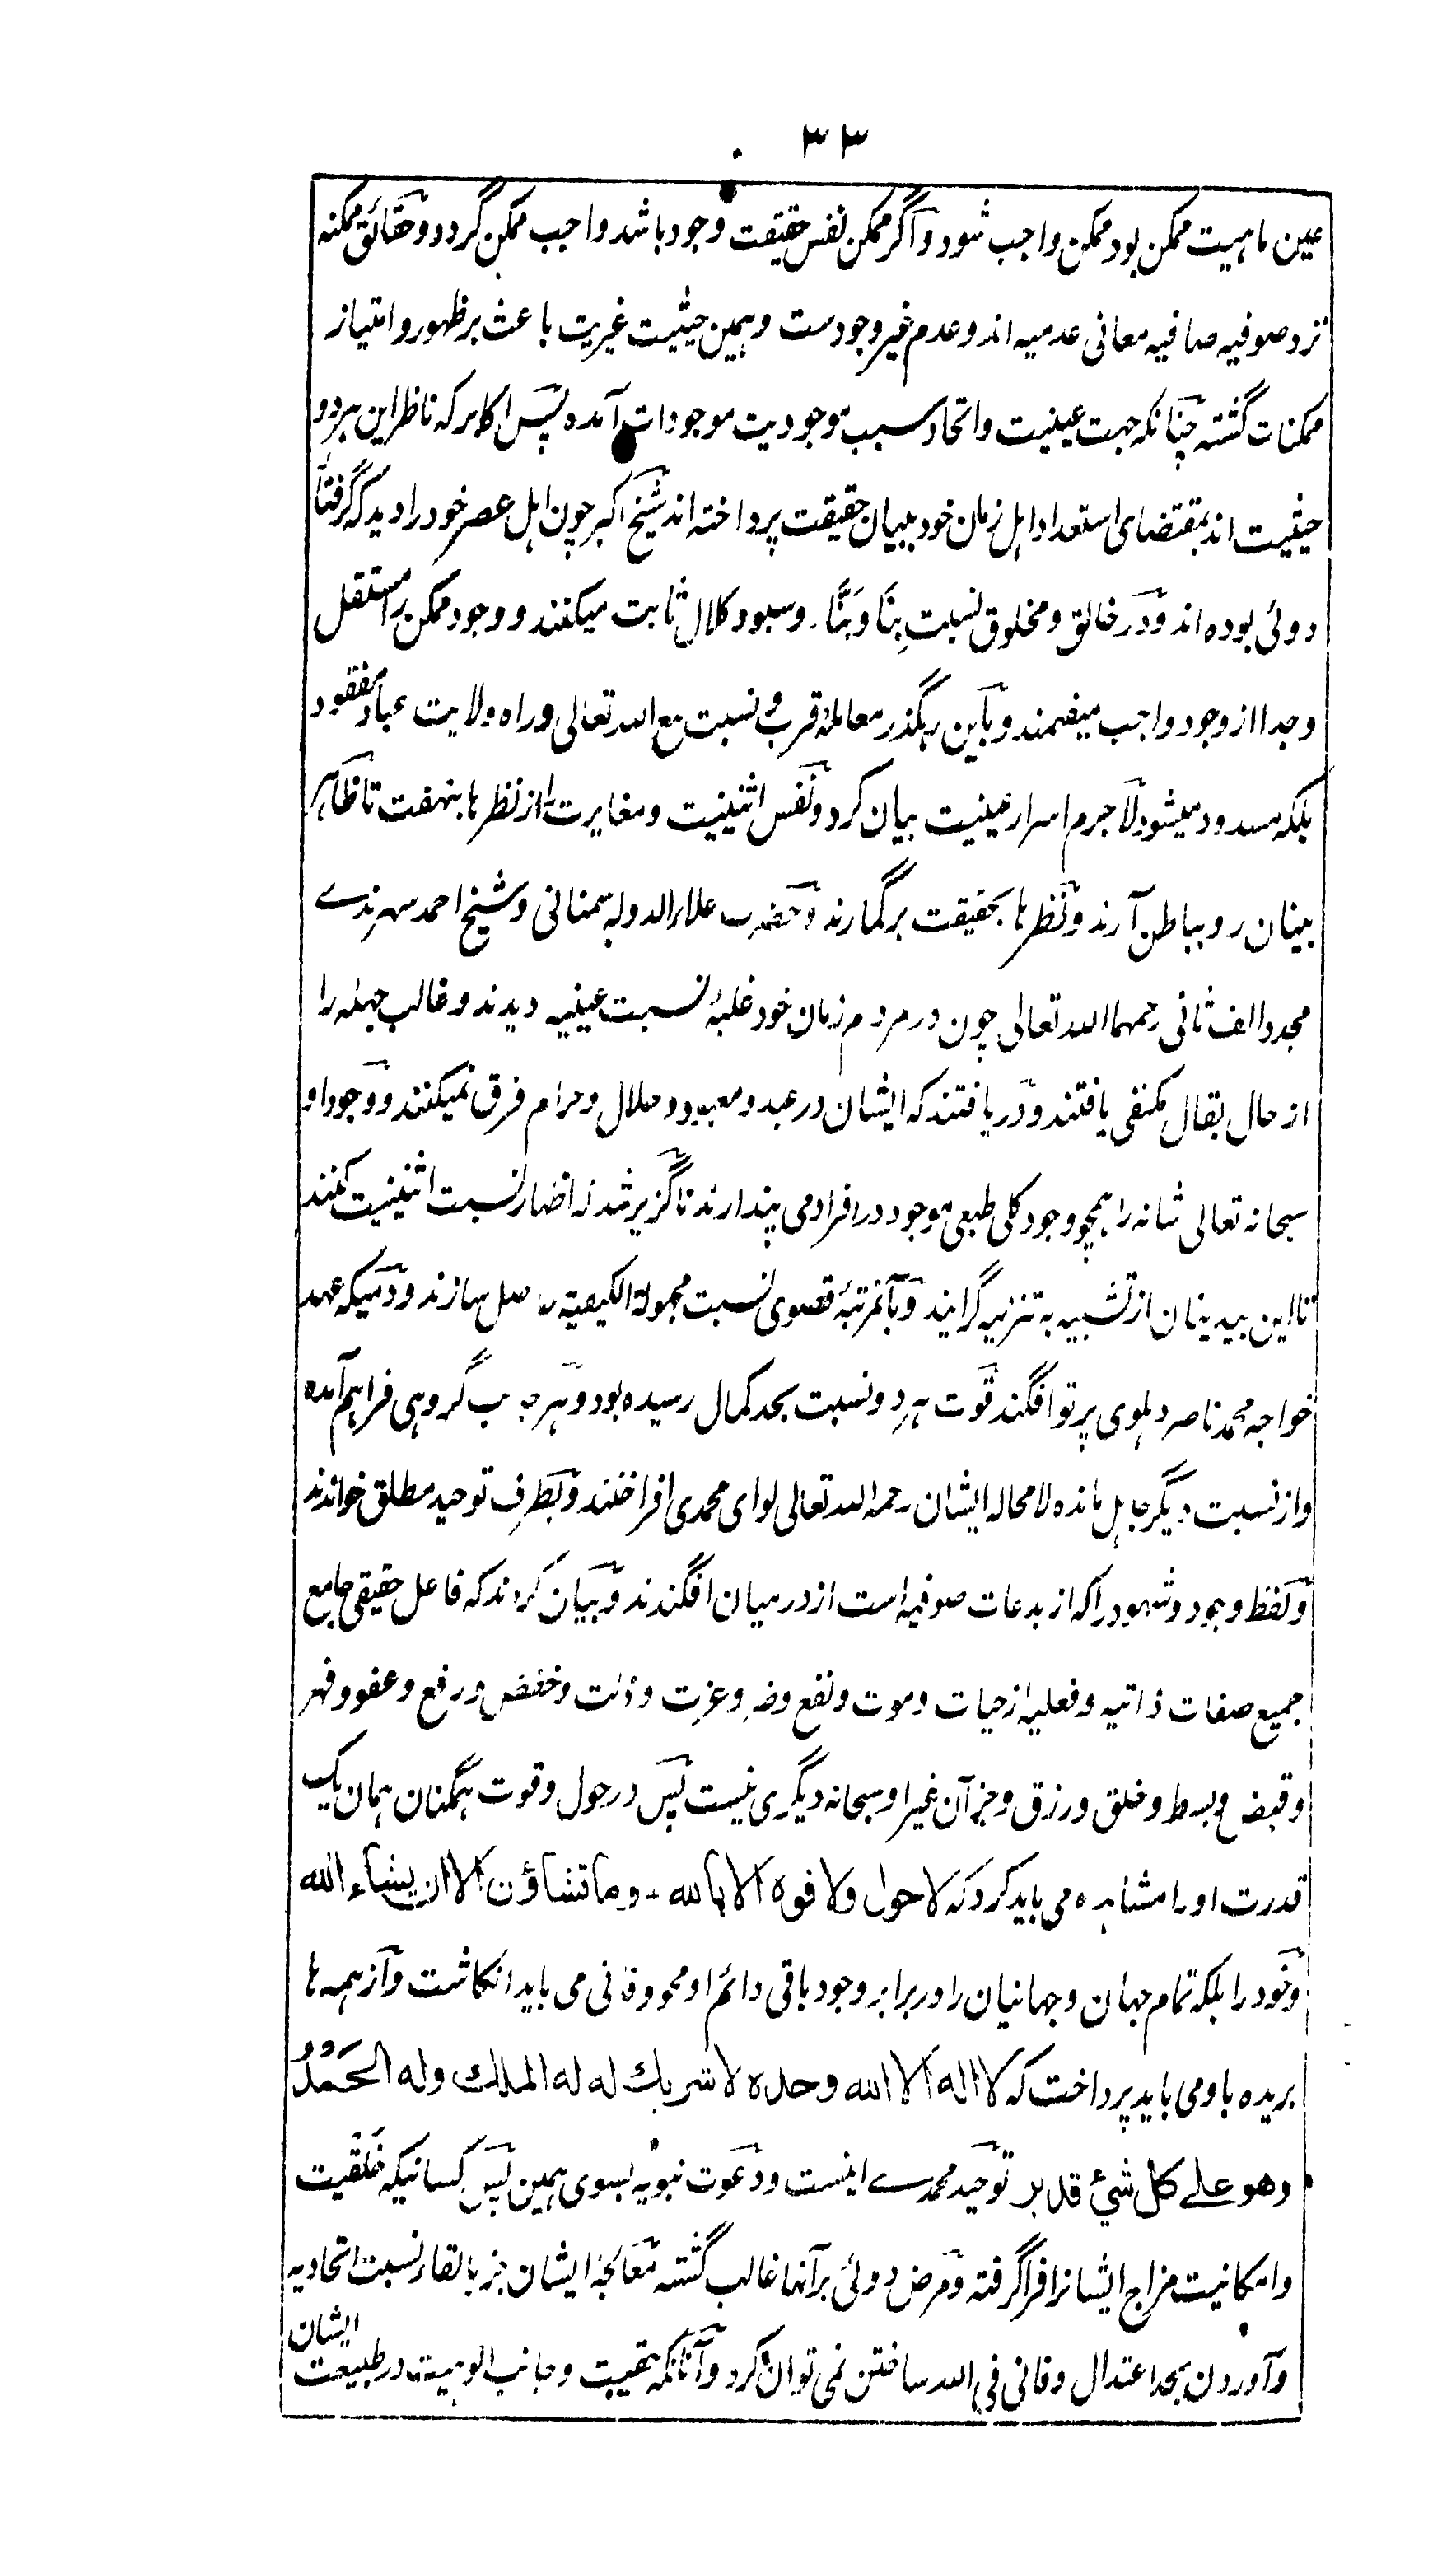 ۳۳
عین ماہیت ممکن بود ممکن واجب شود و اگر ممکن نفس حقیقت وجود باشد واجب ممکن گردد و حقائق ممکنہ
نزد صوفیہ صافیہ معانی عدمیہ اند و عدم غیر وجودست و ہمین حیثیت غیریت باعث بر ظہور و امتیاز
ممکنات گشتہ چنانکہ جہت عینیت و اتحاد سبب موجودیت موجودات آمدہ پس اکابر کہ ناظر این ہر دو
حیثیت اند بمقتضای استعداد اہل زمان خود ببیان حقیقت پرداختہ اند شیخ اکبر چون اہل عصر خود را دید کہ گرفتار
دوئی بودہ اند و در خالق و مخلوق نسبت بِنّا و بَنّا و سبو و کلال ثابت میکنند و وجود ممکن را مستقل
و جدا از وجود واجب میفہمند و باین رہگذر معاملۂ قرب و نسبت مع اللہ تعالی و راہ ولایت عباد مفقود
بلکہ مسدود میشود لاجرم اسرار عینیت بیان کرد و نفس اثنینیت و مغایرت را از نظرہا بنہفت تا ظاہر
بینان رو بباطن آرند و نظرہا بحقیقت برگمارند و حضرت علاء الدولہ سمنانی و شیخ احمد سہرندے
مجدد الف ثانی رحمہما اللہ تعالی چون در مردم زمان خود غلبۂ نسبت عینیہ دیدند و غالب جہلہ را
از حال بقال مکتفی یافتند و دریافتند کہ ایشان در عبد و معبود و حلال و حرام فرق نمیکنند و وجود او
سبحانہ تعالی شانہ را ہمچو وجود کلی طبعی موجود در افراد می پندارند ناگزیر شد کہ اظہار نسبت اثنینیت کنند
تا این بیدینان از تشبیہ بہ تنزیہ گرایند و بآنمرتبۂ قصوی نسبت مجہولۃ الکیفیۃ حاصل سازند و دمیکہ عہد
خواجہ محمد ناصر دہلوی پرتو افگند قوت ہر دو نسبت بحد کمال رسیدہ بود و ہر جانب گروہی فراہم آمدہ
و از نسبت دیگر جاہل ماندہ لامحالہ ایشان رحمہ اللہ تعالی لوای محمدی افراختند و بطرف توحید مطلق خواندند
و لفظ وجود و شہود را کہ از بدعات صوفیہ است از درمیان افگندند و بیان کردند کہ فاعل حقیقی جامع
جمیع صفات ذاتیہ و فعلیہ از حیات و موت و نفع و ضر و عزت و ذلت و خفض و رفع و عفو و قہر
و قبض و بسط و خلق و رزق و جز آن غیر او سبحانہ دیگری نیست پس در حول و قوت ہمگنان ہمان یک
قدرت او را مشاہدہ می باید کرد کہ لا حول ولا قوة الا بالله - وما تشاؤن الا ان يشاء الله
و خود را بلکہ تمام جہان و جہانیان را در برابر وجود باقی دائم او محو و فانی می باید انگاشت و از ہمہ ہا
بریدہ باو می باید پرداخت کہ لا اله الا الله وحده لا شريك له له الملك وله الحَمْدُ
وهو علے كل شيئ قدير توحید محمدے اینست و دعوت نبویہ بسوی ہمین پس کسانیکہ خلقیت
و امکانیت مزاج ایشانرا فرا گرفتہ و مرض دوئی برآنہا غالب گشتہ معالجۂ ایشان جز بالقاء نسبت اتحادیہ
و آوردن بحد اعتدال و فانی فی اللہ ساختن نمی توان کرد و آنانکہ حقیت و جانب الوہیت در طبیعت ایشان